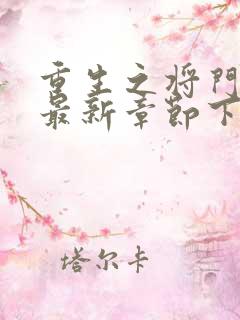 重生之将门
最新章节下
塔尔卡